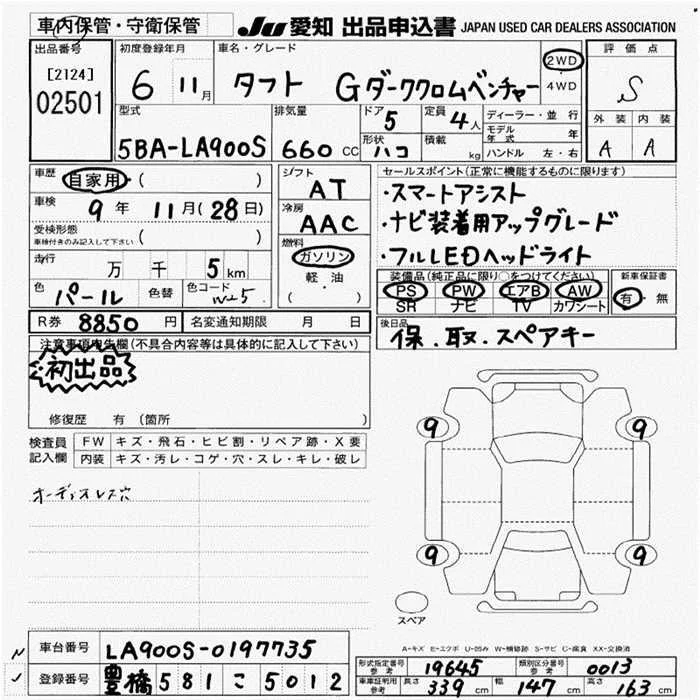 車内保管・守衛保管
JU 愛知 出品申込書 JAPAN USED CAR DEALERS ASSOCIATION
出品番号 初度登録年月 車名・グレード 評価点
[2124] 2WD
02501 6 11月 タフト Gダーククロムベンチャー 4WD S
型式 排気量 ドア 5 定員 4人 ディーラー・並行 外装 内装
モデル年式 年
5BA-LA900S 660cc 形状 ハコ 積載 kg ハンドル 左・右 A A
車歴 自家用・( ) シフト AT セールスポイント(正常に機能するものに限ります)
車検 9年 11月(28日) 冷房 AAC ・スマートアシスト
受検形態 車検付きのみ記入して下さい ( ) ・ナビ装着用アップグレード
走行 万 千 5km 燃料 ガソリン ・フルLEDヘッドライト
軽・油
( )
色 パール 色替 色コード W25 装備品(純正品に限り○をつけてください) 新車保証書
PS PW エアB AW 有・無
SR ナビ TV カワシート
R券 8850円 名変通知期限 月 日 後日品
保.取.スペアキー
注意事項申告欄(不具合内容等は具体的に記入して下さい)
初出品
修復歴 有(箇所 )
検査員記入欄 FW キズ・飛石・ヒビ割・リペア跡・X要
内装 キズ・汚レ・コゲ・穴・スレ・キレ・破レ
オーディオレス穴
9 9
9 9
スペア
A-キズ E-エクボ U-凹み W-補修跡 S-サビ C-腐食 XX-交換済
車台番号 LA900S-0197735
登録番号 豊橋 581 こ 5012
形式指定番号 参考 19645 類別区分番号 参考 0013
車庫証明用 参考 長さ 339cm 幅 147cm 高さ 163cm